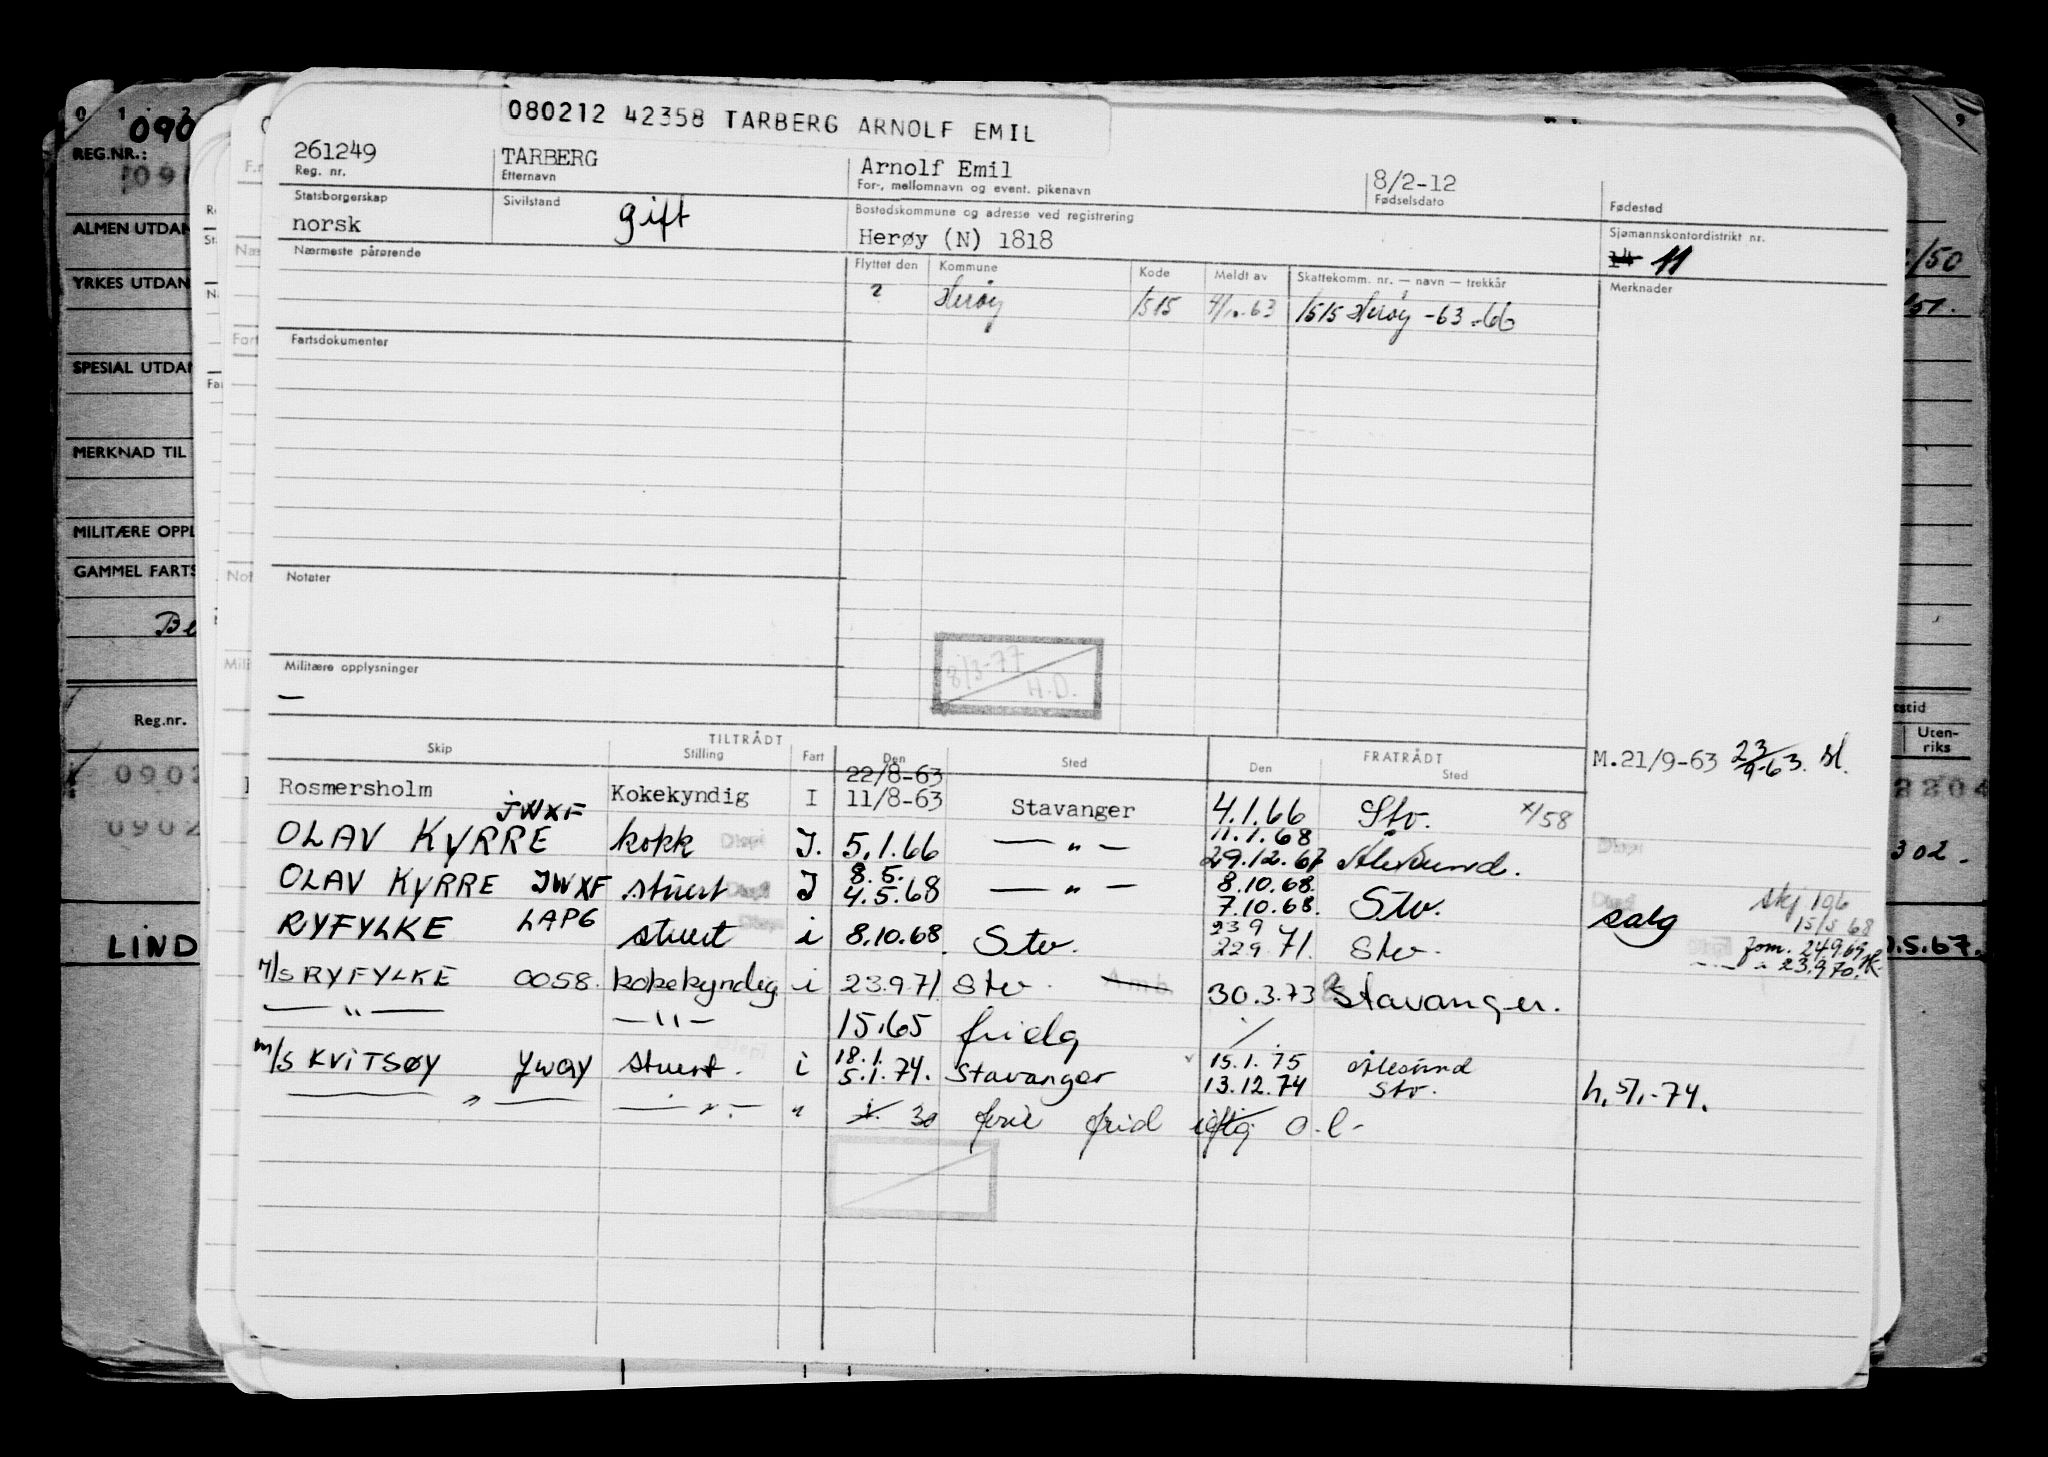 080212 42358 TARBERG ARNOLF EMIL
261249 TARBERG Arnolf Emil 8/2-12
Reg. nr. Etternavn For-, mellomnavn og event. pikenavn Fødselsdato Fødested
Statsborgerskap Sivilstand Bostedskommune og adresse ved registrering Sjømannskontordistrikt nr.
norsk gift Herøy (N) 1818 14 11
Nærmeste pårørende Flyttet den Kommune Kode Meldt av Skattekomm. nr. — navn — trekkår Merknader
? Herøy 1515 4/10-63 1515 Herøy -63-66
Fartsdokumenter
Notater
Militære opplysninger
8/3-77 H.D.
—
TILTRÅDT FRATRÅDT
Skip Stilling Fart Den Sted Den Sted
M.21/9-63 23/9-63. sl.
22/8-63
Rosmersholm Kokekyndig I 11/8-63 Stavanger 4.1.66 Stv. x/58
JWXF 11.1.68
OLAV KYRRE kokk J. 5.1.66 — " — 29.12.67 Ålesund.
8.5. 8.10.68.
OLAV KYRRE JWXF stuert J 4.5.68 — " — 7.10.68. Stv. salg
skj 196
15/5 68
23 9
RYFYLKE LAPG stuert i 8.10.68 Stv. 22 9 71. Stv.
fom. 24.9.69
— " — 23.9.70.
M/S RYFYLKE OO58. kokekyndig i 23.9 71. Stv. Amb. 30.3.73 Stavanger.
— " — — " — 15.65 fridg
18.1. 15.1.75 Ålesund
m/s KVITSØY JWQY stuert. i 5.1.74. Stavanger 13.12.74 Stv. h. 5/1-74.
— " — — " — " 30 frid o.l-
090
REG.NR.:
ALMEN UTDAN
YRKES UTDAN
SPESIAL UTDAN
MERKNAD TIL
MILITÆRE OPPL
GAMMEL FARTS
Be
Reg.nr.
0902
0902
LIND
/50
Uten-
riks
302.
.5.67.